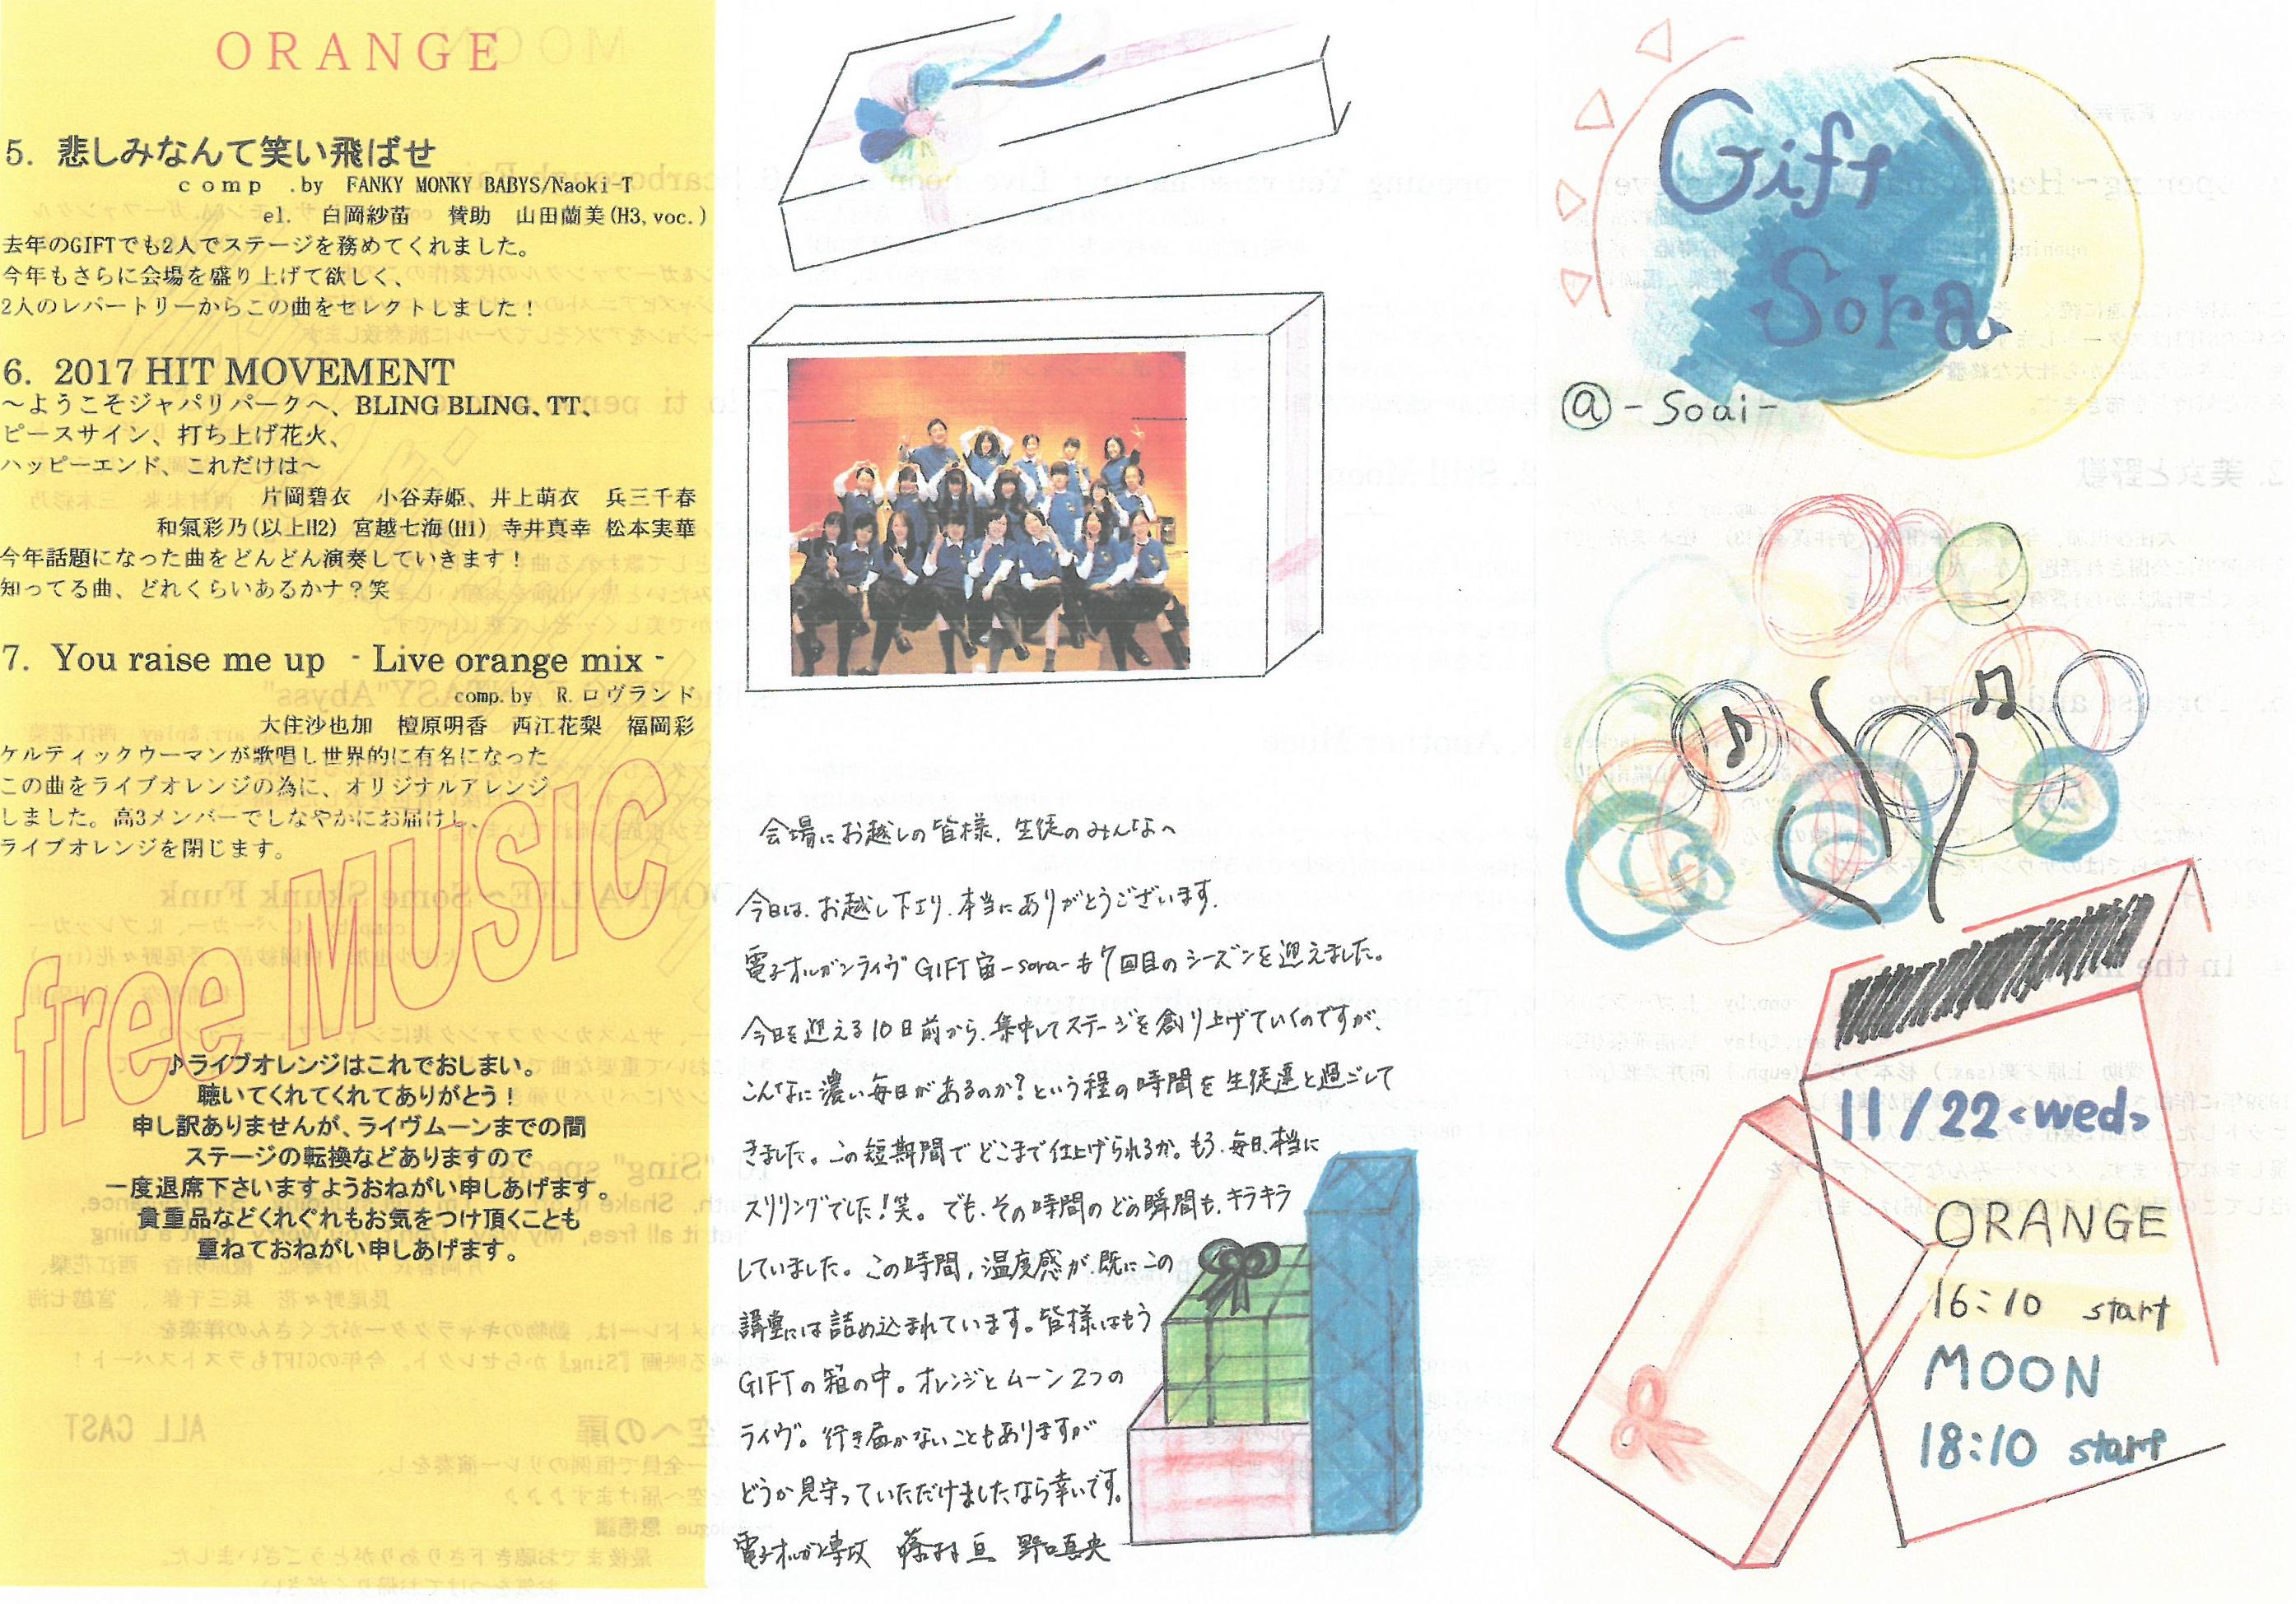 ORANGE
5. 悲しみなんて笑い飛ばせ
comp .by FANKY MONKY BABYS/Naoki-T
el. 白岡紗苗 賛助 山田蘭美(H3,voc.)
去年のGIFTでも2人でステージを務めてくれました。
今年もさらに会場を盛り上げて欲しく、
2人のレパートリーからこの曲をセレクトしました！
6. 2017 HIT MOVEMENT
～ようこそジャパリパークへ、BLING BLING、TT、
ピースサイン、打ち上げ花火、
ハッピーエンド、これだけは～
片岡碧衣 小谷寿姫、井上萌衣 兵三千春
和氣彩乃(以上H2) 宮越七海(H1) 寺井真幸 松本実華
今年話題になった曲をどんどん演奏していきます！
知ってる曲、どれくらいあるかナ？笑
7. You raise me up - Live orange mix -
comp.by R.ロヴランド
大住沙也加 檀原明香 西江花梨 福岡彩
ケルティックウーマンが歌唱し世界的に有名になった
この曲をライブオレンジの為に、オリジナルアレンジ
しました。高3メンバーでしなやかにお届けし、
ライブオレンジを閉じます。
free MUSIC
♪ライブオレンジはこれでおしまい。
聴いてくれてくれてありがとう！
申し訳ありませんが、ライヴムーンまでの間
ステージの転換などありますので
一度退席下さいますようおねがい申しあげます。
貴重品などくれぐれもお気をつけ頂くことも
重ねておねがい申しあげます。
会場にお越しの皆様、生徒のみんなへ
今日は、お越し下さり、本当にありがとうございます。
電子オルガンライヴ GIFT宙-sora-も7回目のシーズンを迎えました。
今日を迎える10日前から、集中してステージを創り上げていくのですが、
こんなに濃い毎日があるのか？という程の時間を生徒達と過ごして
きました。この短期間でどこまで仕上げられるか。もう、毎日、本当に
スリリングでした！笑。でも、その時間のどの瞬間も、キラキラ
していました。この時間，温度感が、既にこの
講堂には詰め込まれています。皆様はもう
GIFTの箱の中。オレンジとムーン2つの
ライヴ。行き届かないこともありますが
どうか見守っていただけましたなら幸いです。
電子オルガン専攻 藤村亘 野口真央
Gift
Sora
@-Soai-
11/22<wed>
ORANGE
16:10 start
MOON
18:10 start